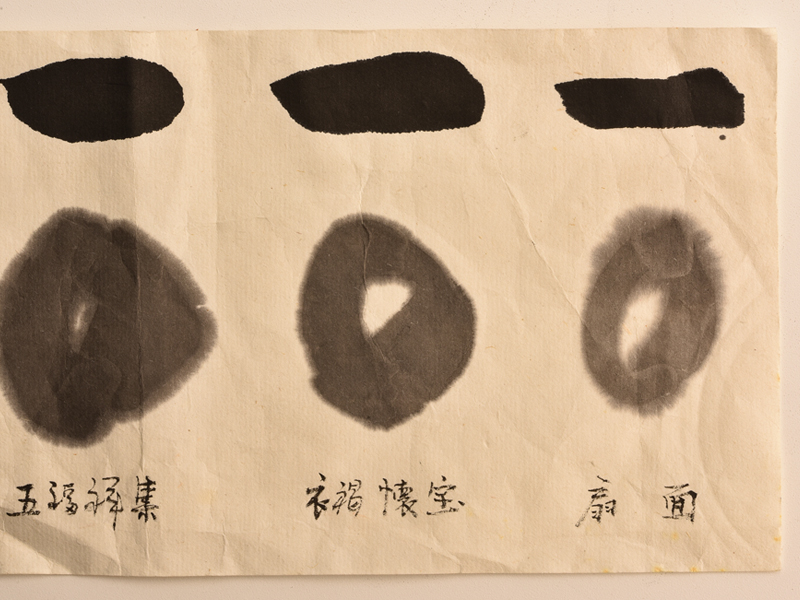 五福祥集
衣褐懐宝
扇面